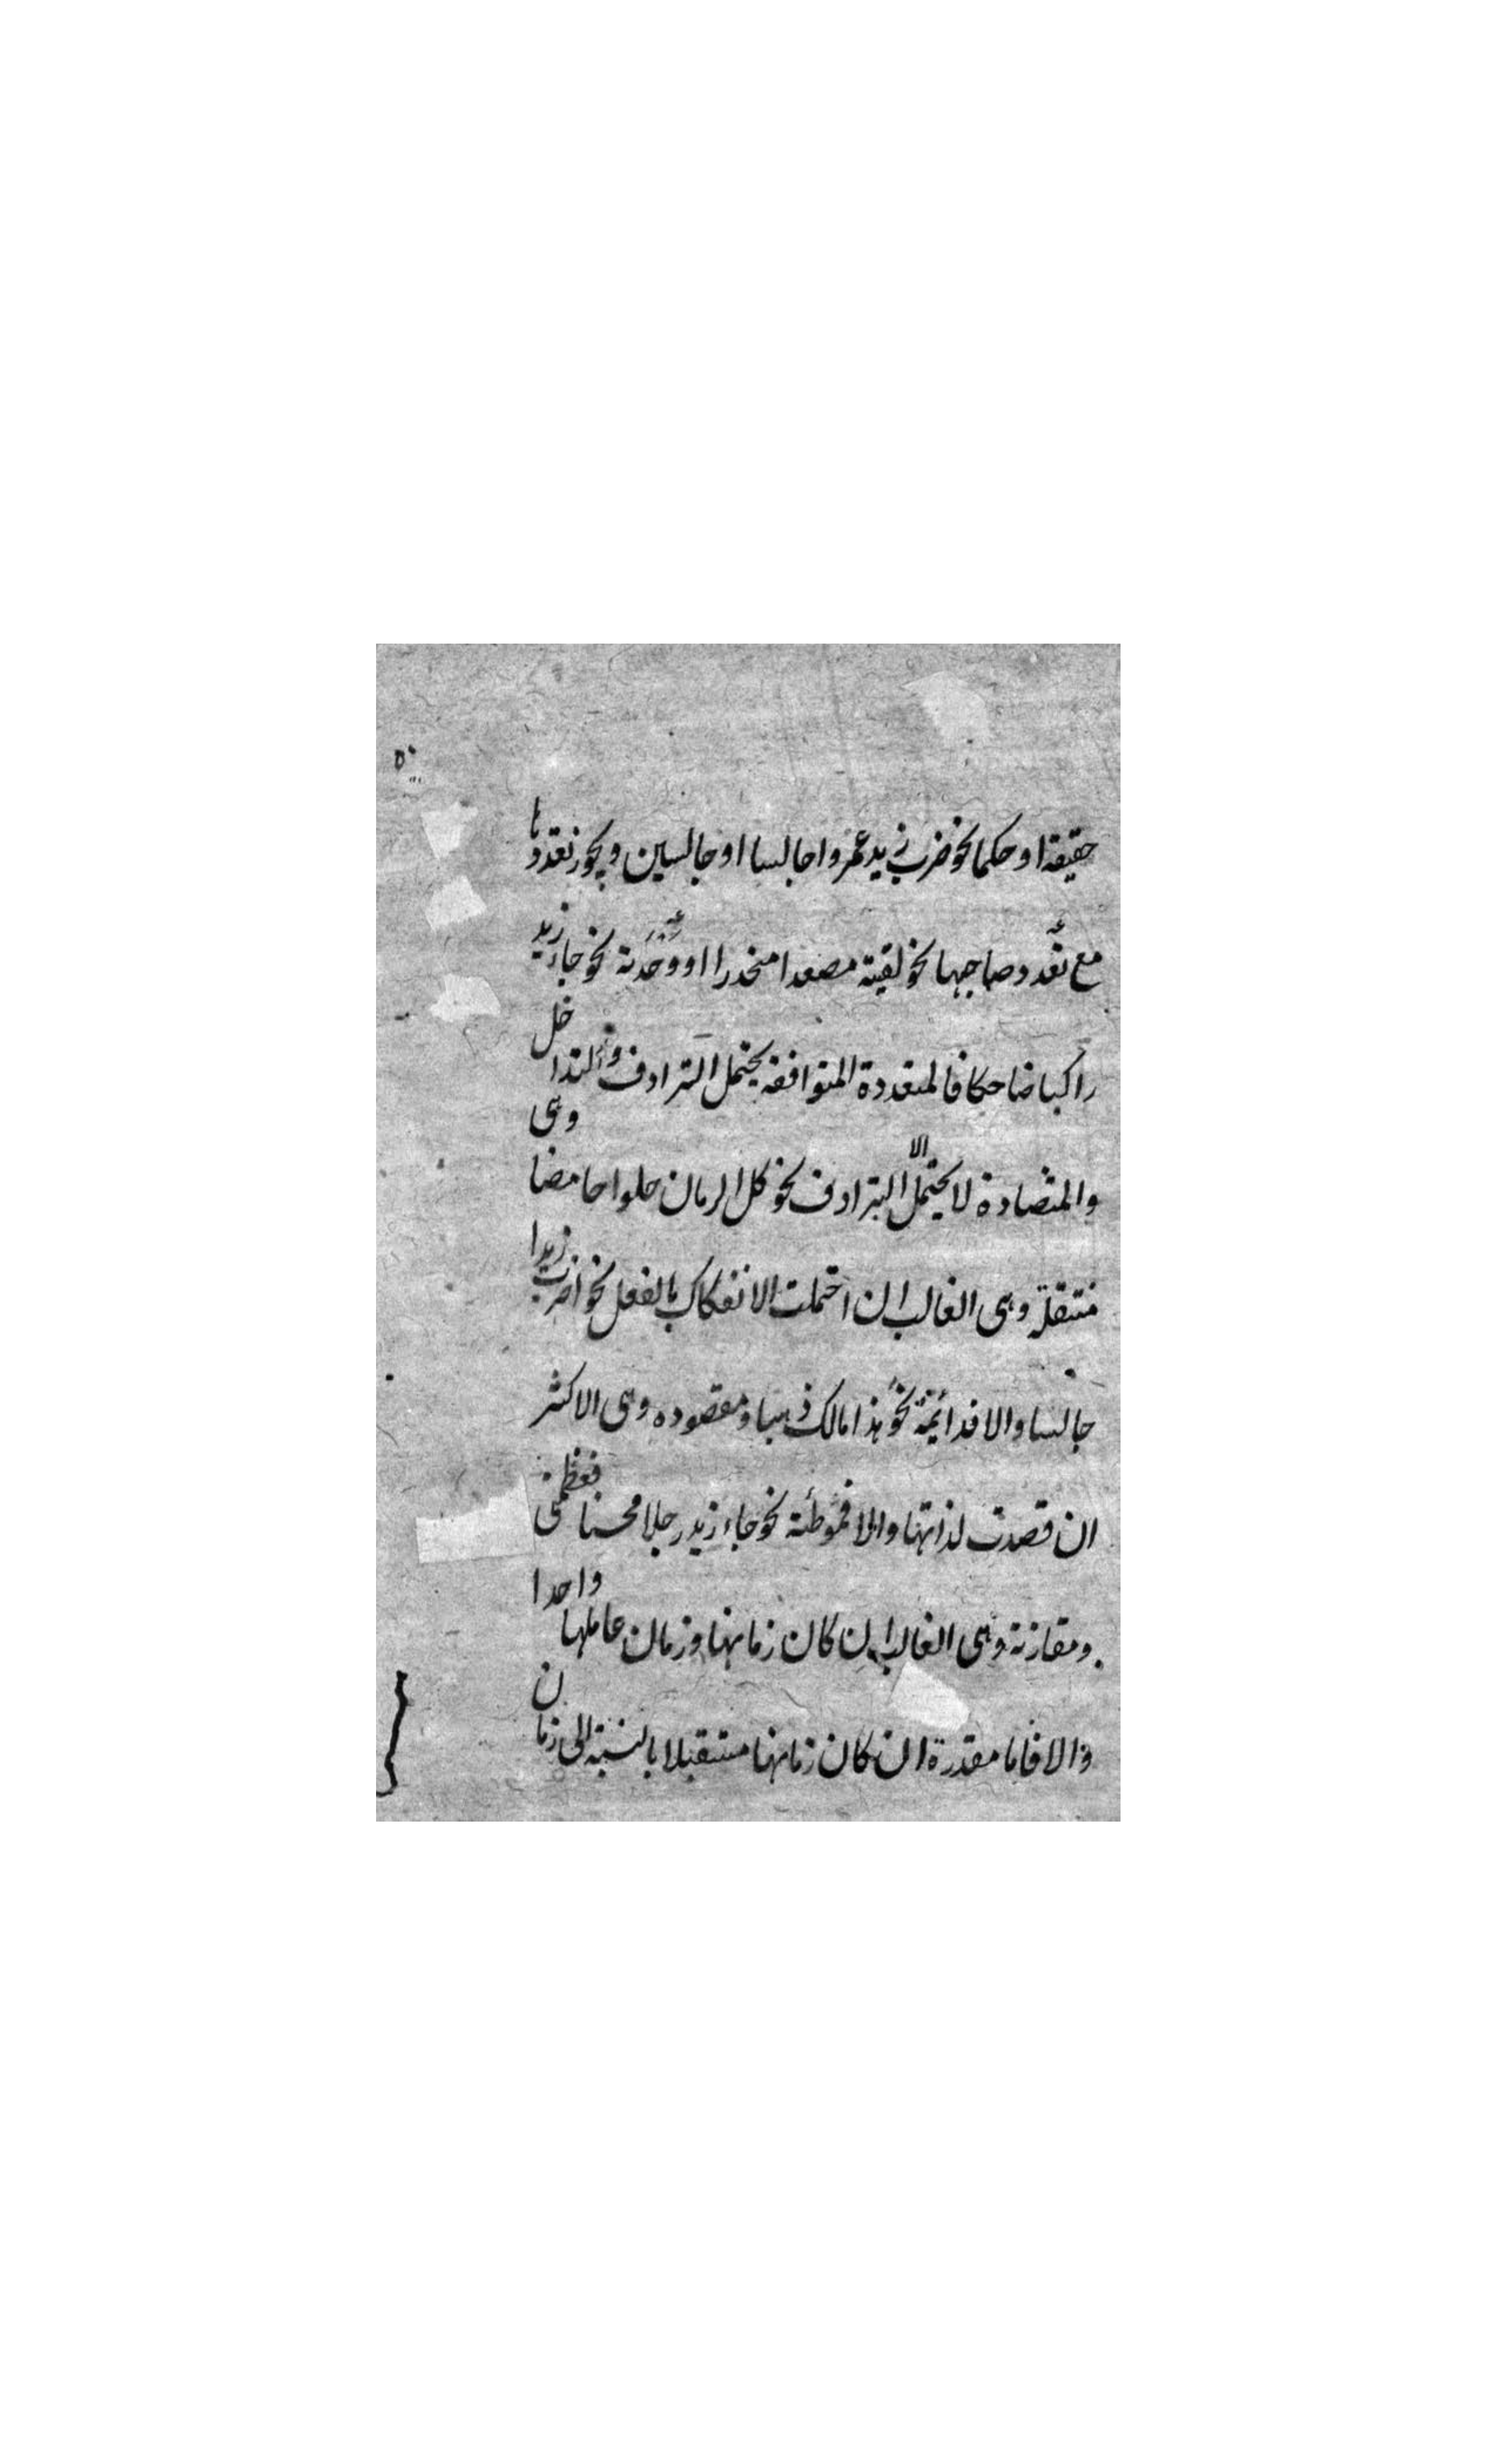 ۵۰
حقيقة او حكما نحو ضرب زيد عمروا جالسا او جالسين ويجوز تعددها
مع تعدد صاحبها نحو لقيته مصعدا منحدرا او وحدته نحو جاء زيد
راكبا ضاحكا فالمتعددة المتوافقه يحتمل الترادف والتداخل
والمتضادة لا يحتمل الا الترادف نحو كل الرمان حلوا حامضا وهى
منتقلة وهى الغالب ان احتملت الانفكاك بالفعل نحو اضرب زيدا
جالسا والا فدائمة نحو هذا مالك ذهبا ومقصوده وهى الاكثر
ان قصدت لذاتها والا فموطئة نحو جاء زيد رجلا محسنا
ومقارنة وهى الغالب ان كان زمانها وزمان عاملها واحدا
والا فاما مقدرة ان كان زمانها مستقبلا بالنسبة الى زمان